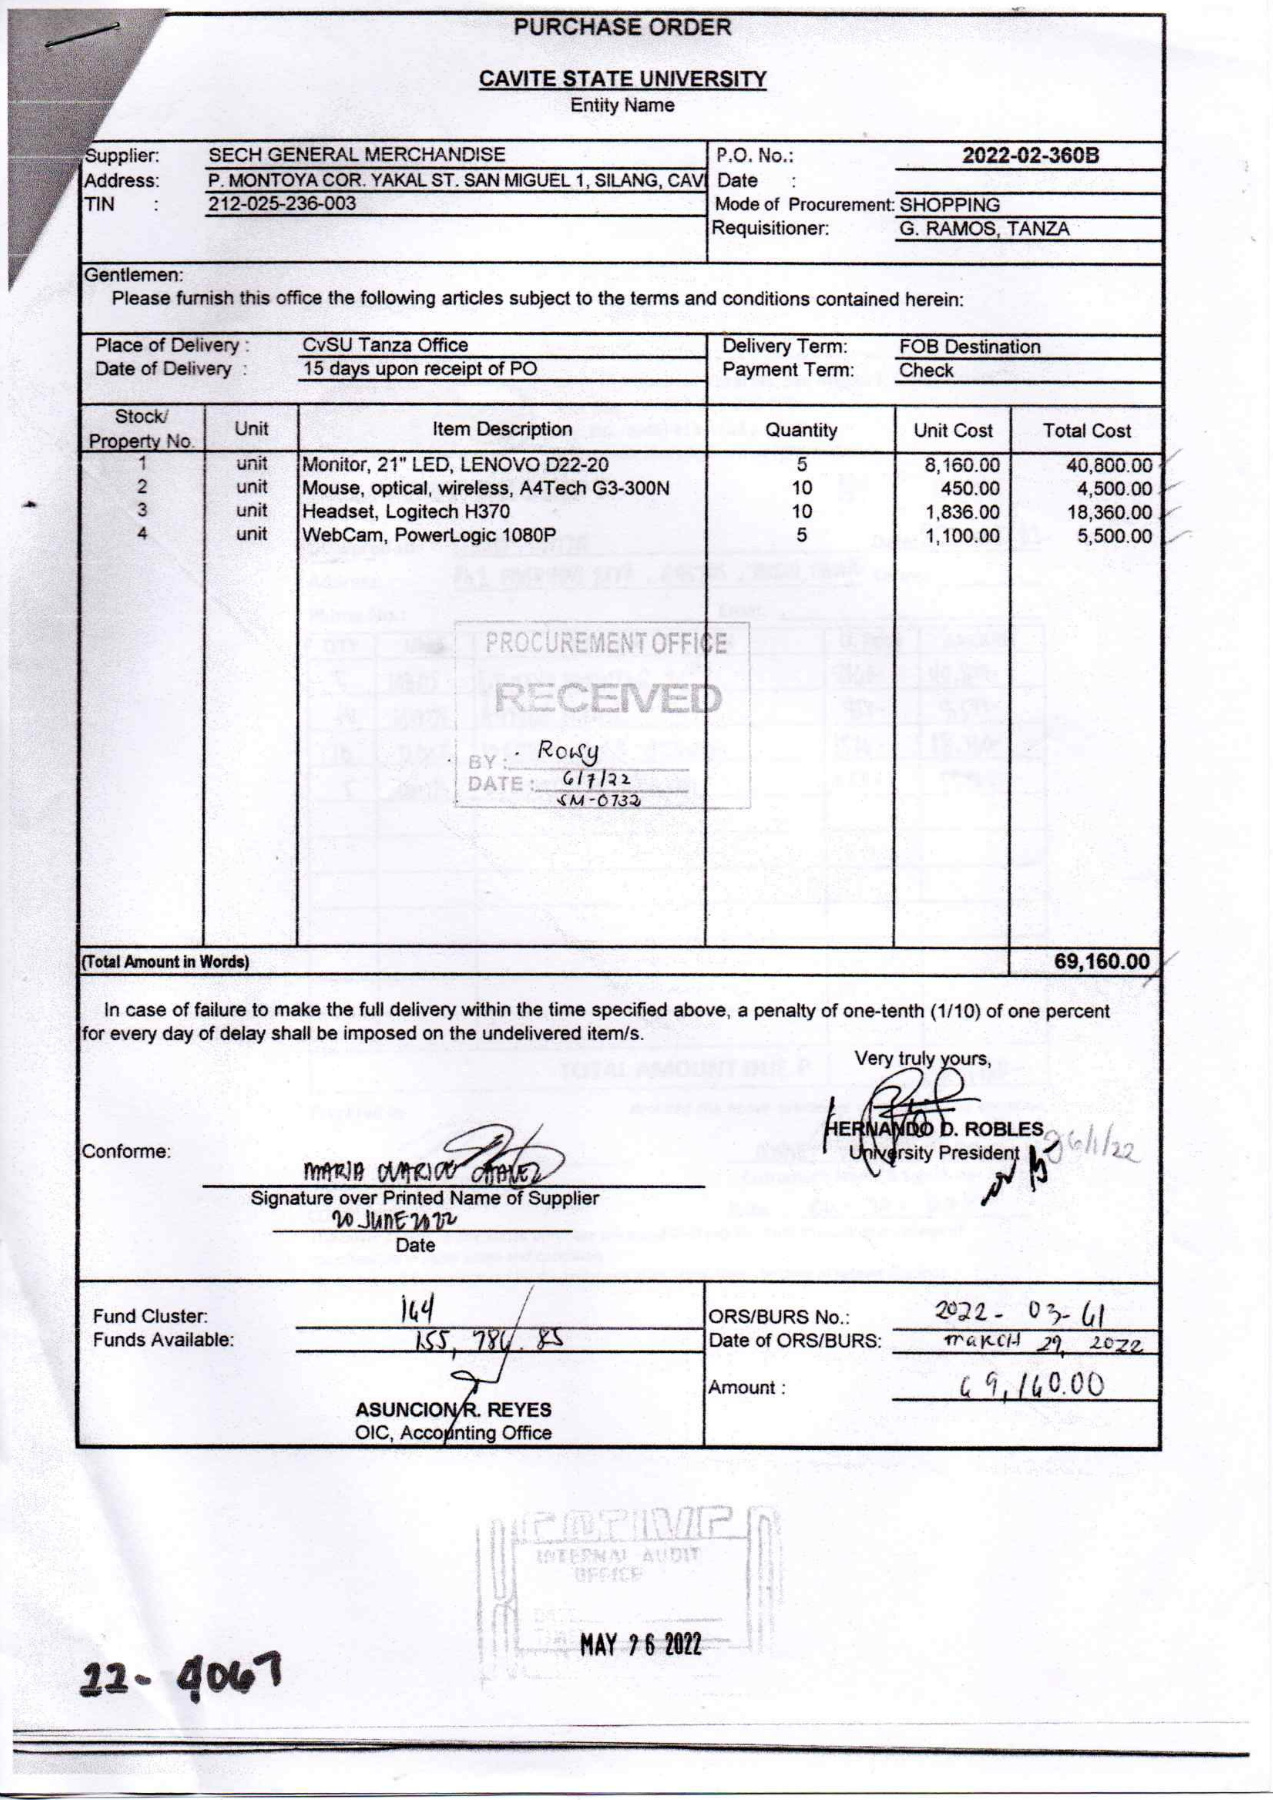 PURCHASE ORDER
CAVITE STATE UNIVERSITY
Entity Name
Supplier: SECH GENERAL MERCHANDISE
Address: P. MONTOYA COR. YAKAL ST. SAN MIGUEL 1, SILANG, CAVI
TIN : 212-025-236-003
P.O. No.: 2022-02-360B
Date :
Mode of Procurement: SHOPPING
Requisitioner: G. RAMOS, TANZA
Gentlemen:
Please furnish this office the following articles subject to the terms and conditions contained herein:
Place of Delivery : CvSU Tanza Office
Date of Delivery : 15 days upon receipt of PO
Delivery Term: FOB Destination
Payment Term: Check
Stock/ Property No. Unit Item Description Quantity Unit Cost Total Cost
1 unit Monitor, 21" LED, LENOVO D22-20 5 8,160.00 40,800.00
2 unit Mouse, optical, wireless, A4Tech G3-300N 10 450.00 4,500.00
3 unit Headset, Logitech H370 10 1,836.00 18,360.00
4 unit WebCam, PowerLogic 1080P 5 1,100.00 5,500.00
PROCUREMENT OFFICE
RECEIVED
BY: Rowy
DATE: 6/7/22
SM-0732
(Total Amount in Words) 69,160.00
In case of failure to make the full delivery within the time specified above, a penalty of one-tenth (1/10) of one percent
for every day of delay shall be imposed on the undelivered item/s.
Very truly yours,
HERNANDO D. ROBLES
University President
6/1/22
Conforme:
MARIA
Signature over Printed Name of Supplier
20 JUNE 2022
Date
Fund Cluster: 164
Funds Available: 155,786.85
ASUNCION R. REYES
OIC, Accounting Office
ORS/BURS No.: 2022-03-61
Date of ORS/BURS: MARCH 29, 2022
Amount : 69,160.00
INTERNAL AUDIT
OFFICE
DATE
MAY 26 2022
22-4067